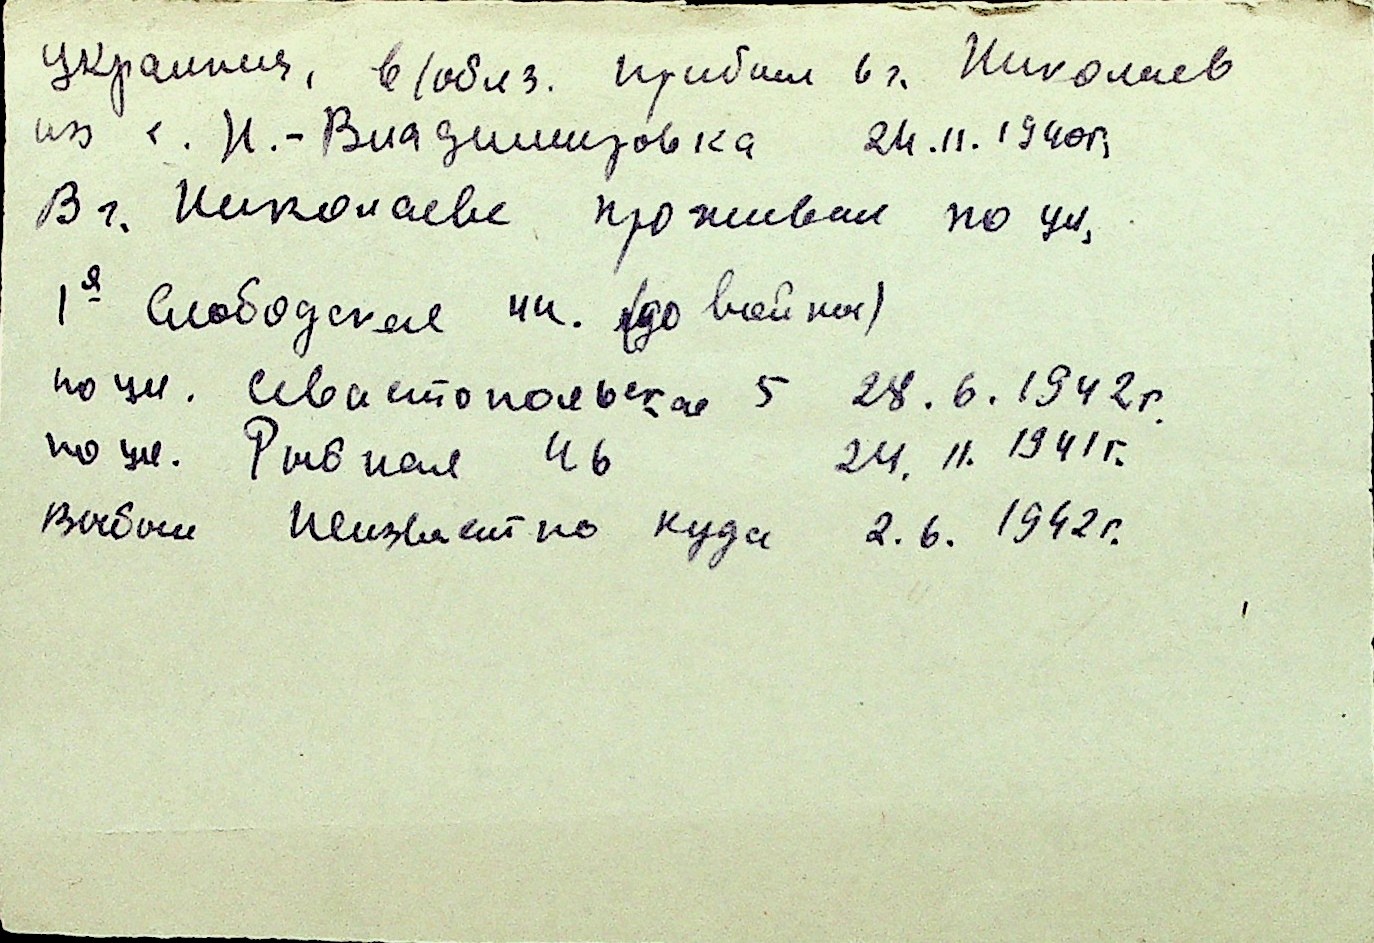 украинец, в/обяз. прибыл в г. Николаев
из с. Н.-Владимировка 24.11.1940г,
В г. Николаеве проживал по ул,
1я Слободская 44. (до войны)
по ул. Севастопольская 5 28.6.1942г.
по ул. Рыбная 46 24.11.1941г.
Выбыл Неизвестно куда 2.6.1942г.